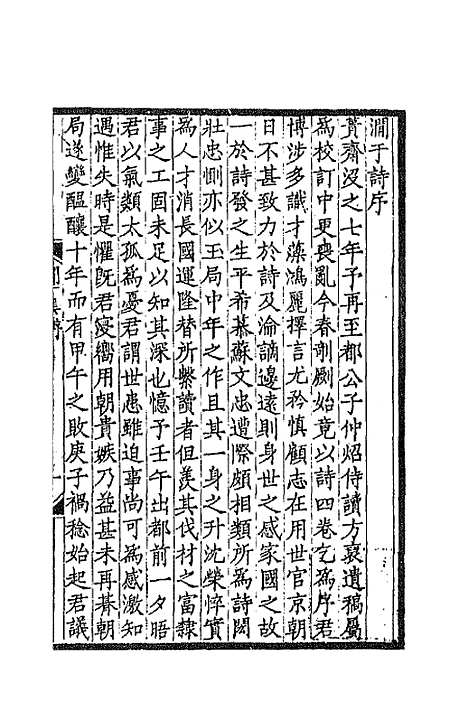 澗于詩序
蕢齋沒之七年予再至都公子仲炤侍讀方裒遺稿屬
爲校訂中更喪亂今春剞劂始竟以詩四卷乞爲序君
博涉多識才藻鴻麗擇言尤矜慎顧志在用世官京朝
日不甚致力於詩及淪謫邊遠則身世之感家國之故
一於詩發之生平希慕蘇文忠遭際頗相類所爲詩閎
壯忠惻亦似玉局中年之作且其一身之升沈榮悴實
爲人才消長國運隆替所繫讀者但羨其伐材之富隸
事之工固未足以知其深也憶予壬午出都前一夕晤
君以氣類太孤爲憂君謂世患雖迫事尚可爲感激知
遇惟失時是懼旣君寖嚮用朝貴嫉乃益甚未再朞朝
局遂變醖釀十年而有甲午之敗庚子禍稔始起君議